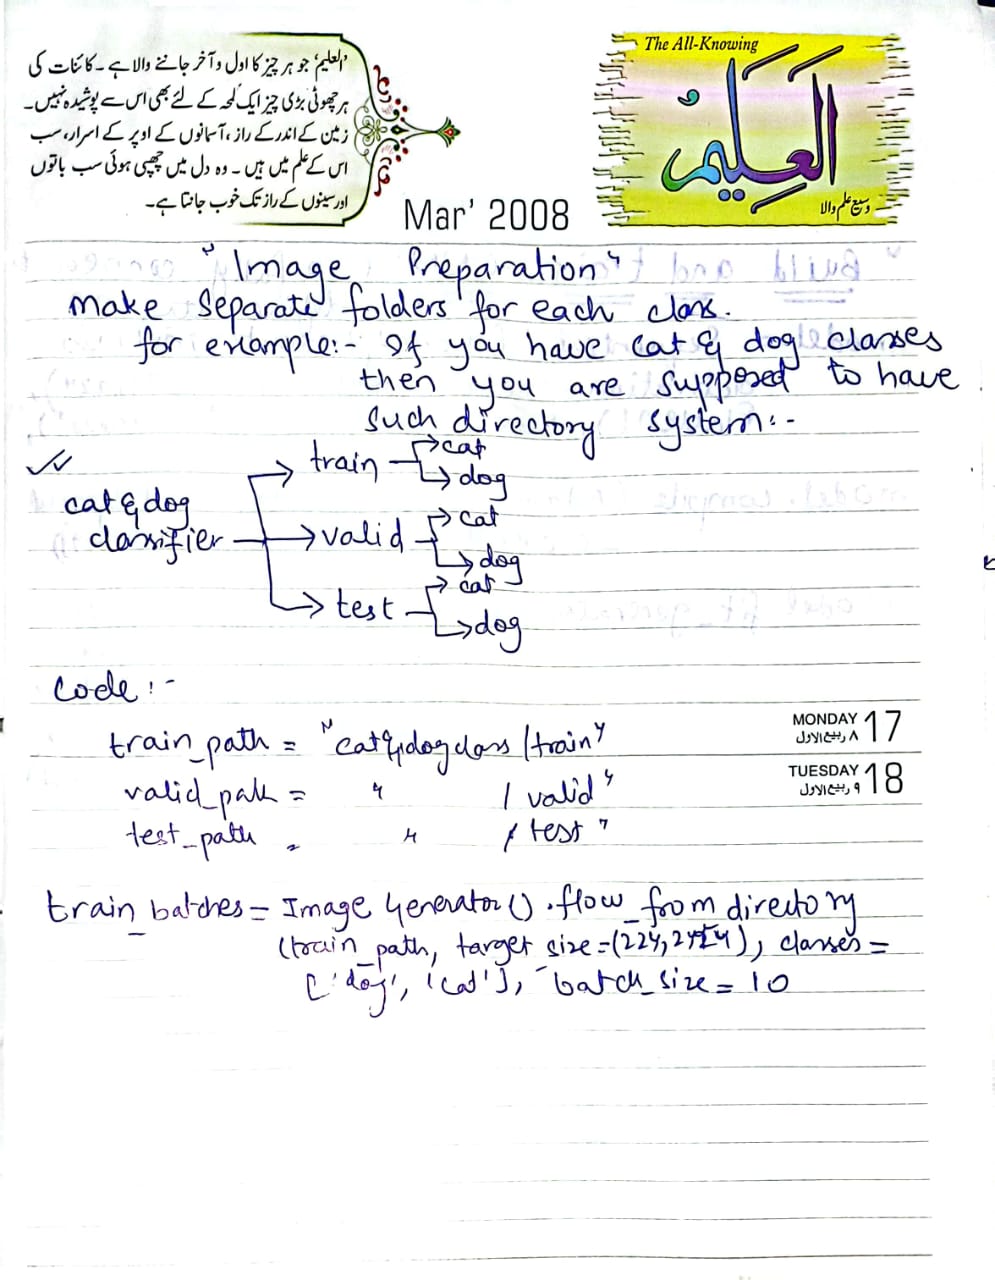 'العلیم' جو ہر چیز کا اول و آخر جاننے والا ہے ۔ کائنات کی
ہر چھوٹی بڑی چیز ایک لمحہ کے لئے بھی اس سے پوشیدہ نہیں۔
زمین کے اندر کے راز، آسمانوں کے اوپر کے اسرار، سب
اس کے علم میں ہیں ۔ وہ دل میں چھپی ہوئی سب باتوں
اور سینوں کے راز تک خوب جانتا ہے۔
The All-Knowing
العليم
وسیع علم والا
Mar' 2008
"Image Preparation"
Make Separate folders for each class.
for example:- If you have cat & dog classes
then you are supposed to have
such directory system:-
cat & dog
classifier
train
cat
dog
valid
cat
dog
test
cat
dog
Code:-
train_path = "cat&dogclass/train"
valid_path = " / valid"
test_path = " / test"
MONDAY 17
۸ ربیع الاول
TUESDAY 18
۹ ربیع الاول
train_batches = Image Generator().flow_from directory
(train_path, target size=(224, ), classes=
['dog', 'cat'], batch_size = 10